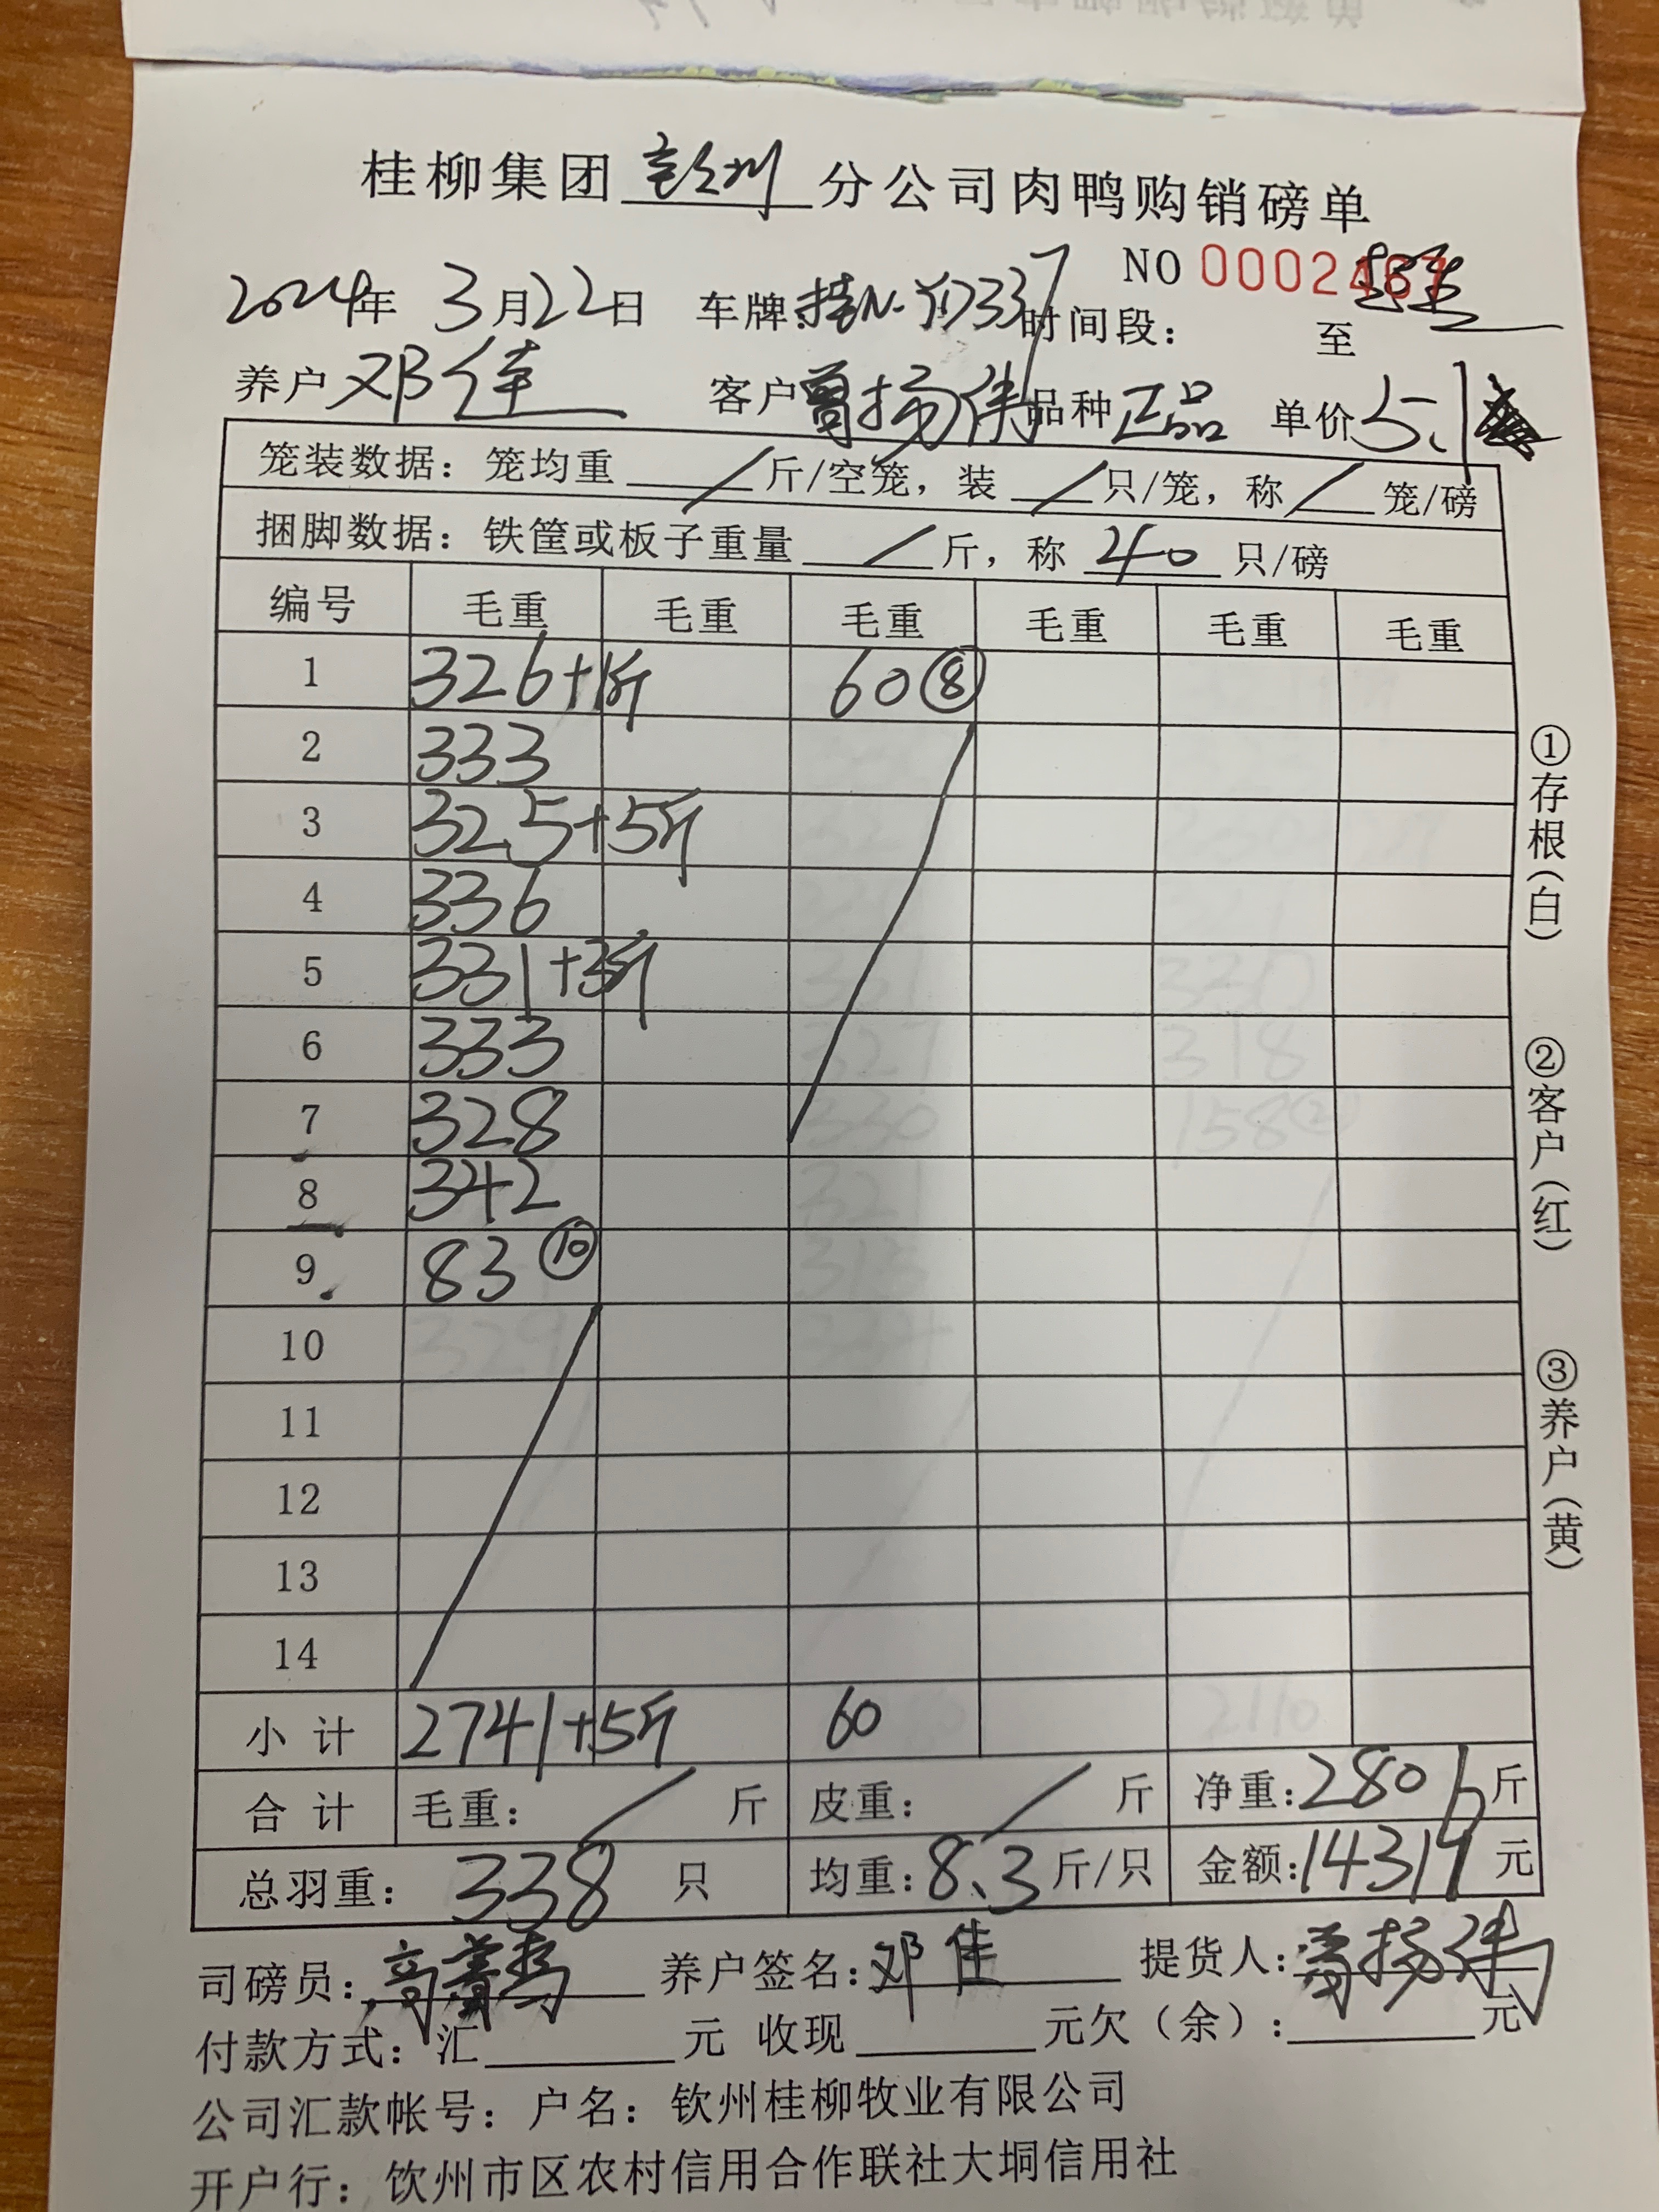 桂柳集团彭州分公司肉鸭购销磅单
NO 0002467
2024年 3月22日 车牌:桂N·Y1D337 时间段: 至
养户 邓佳 客户 曾扬伟 品种 正品 单价 5.1
笼装数据:笼均重 / 斤/空笼,装 / 只/笼,称 / 笼/磅
捆脚数据:铁筐或板子重量 / 斤,称 40 只/磅
编号 毛重 毛重 毛重 毛重 毛重 毛重
1 326+1斤 60⑧
2 333
3 325+5斤
4 336
5 331+3斤
6 333
7 328
8 342
9 83⑩
10
11
12
13
14
小计 2741+5斤 60
合计 毛重: / 斤 皮重: / 斤 净重:2806斤
总羽重: 338 只 均重:8.3斤/只 金额:14319元
司磅员: 养户签名:邓佳 提货人:曾扬伟
付款方式:汇 元 收现 元欠(余): 元
公司汇款帐号:户名:钦州桂柳牧业有限公司
开户行:钦州市区农村信用合作联社大垌信用社
①存根(白)
②客户(红)
③养户(黄)